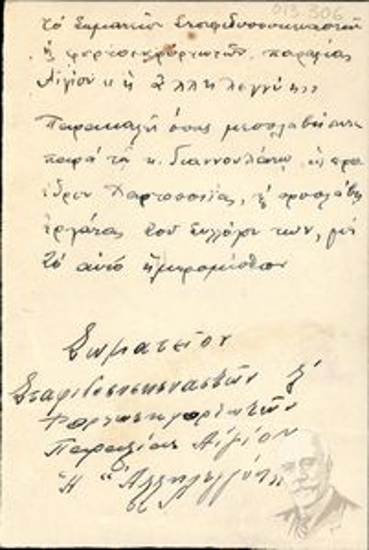 013 306
τό Σωματεῖον Σταφιδοσυσκευαστῶν
& φορτοεκφορτωτῶν παραλίας
Αἰγίου "ἡ Ἀλληλεγγύη"
Παρακαλεῖ ὅπως μεσολαβήσητε
παρά τῷ κ. Γιαννουλάτῳ,
Χαρτοποιΐας, προσλάβῃ
ἐργάτας τοῦ Συλλόγου των, μέ
τό αὐτό ἡμερομίσθιον
Σωματεῖον
Σταφιδοσυσκευαστῶν &
Φορτοεκφορτωτῶν
Παραλίας Αἰγίου
Ἡ "Ἀλληλεγγύη"